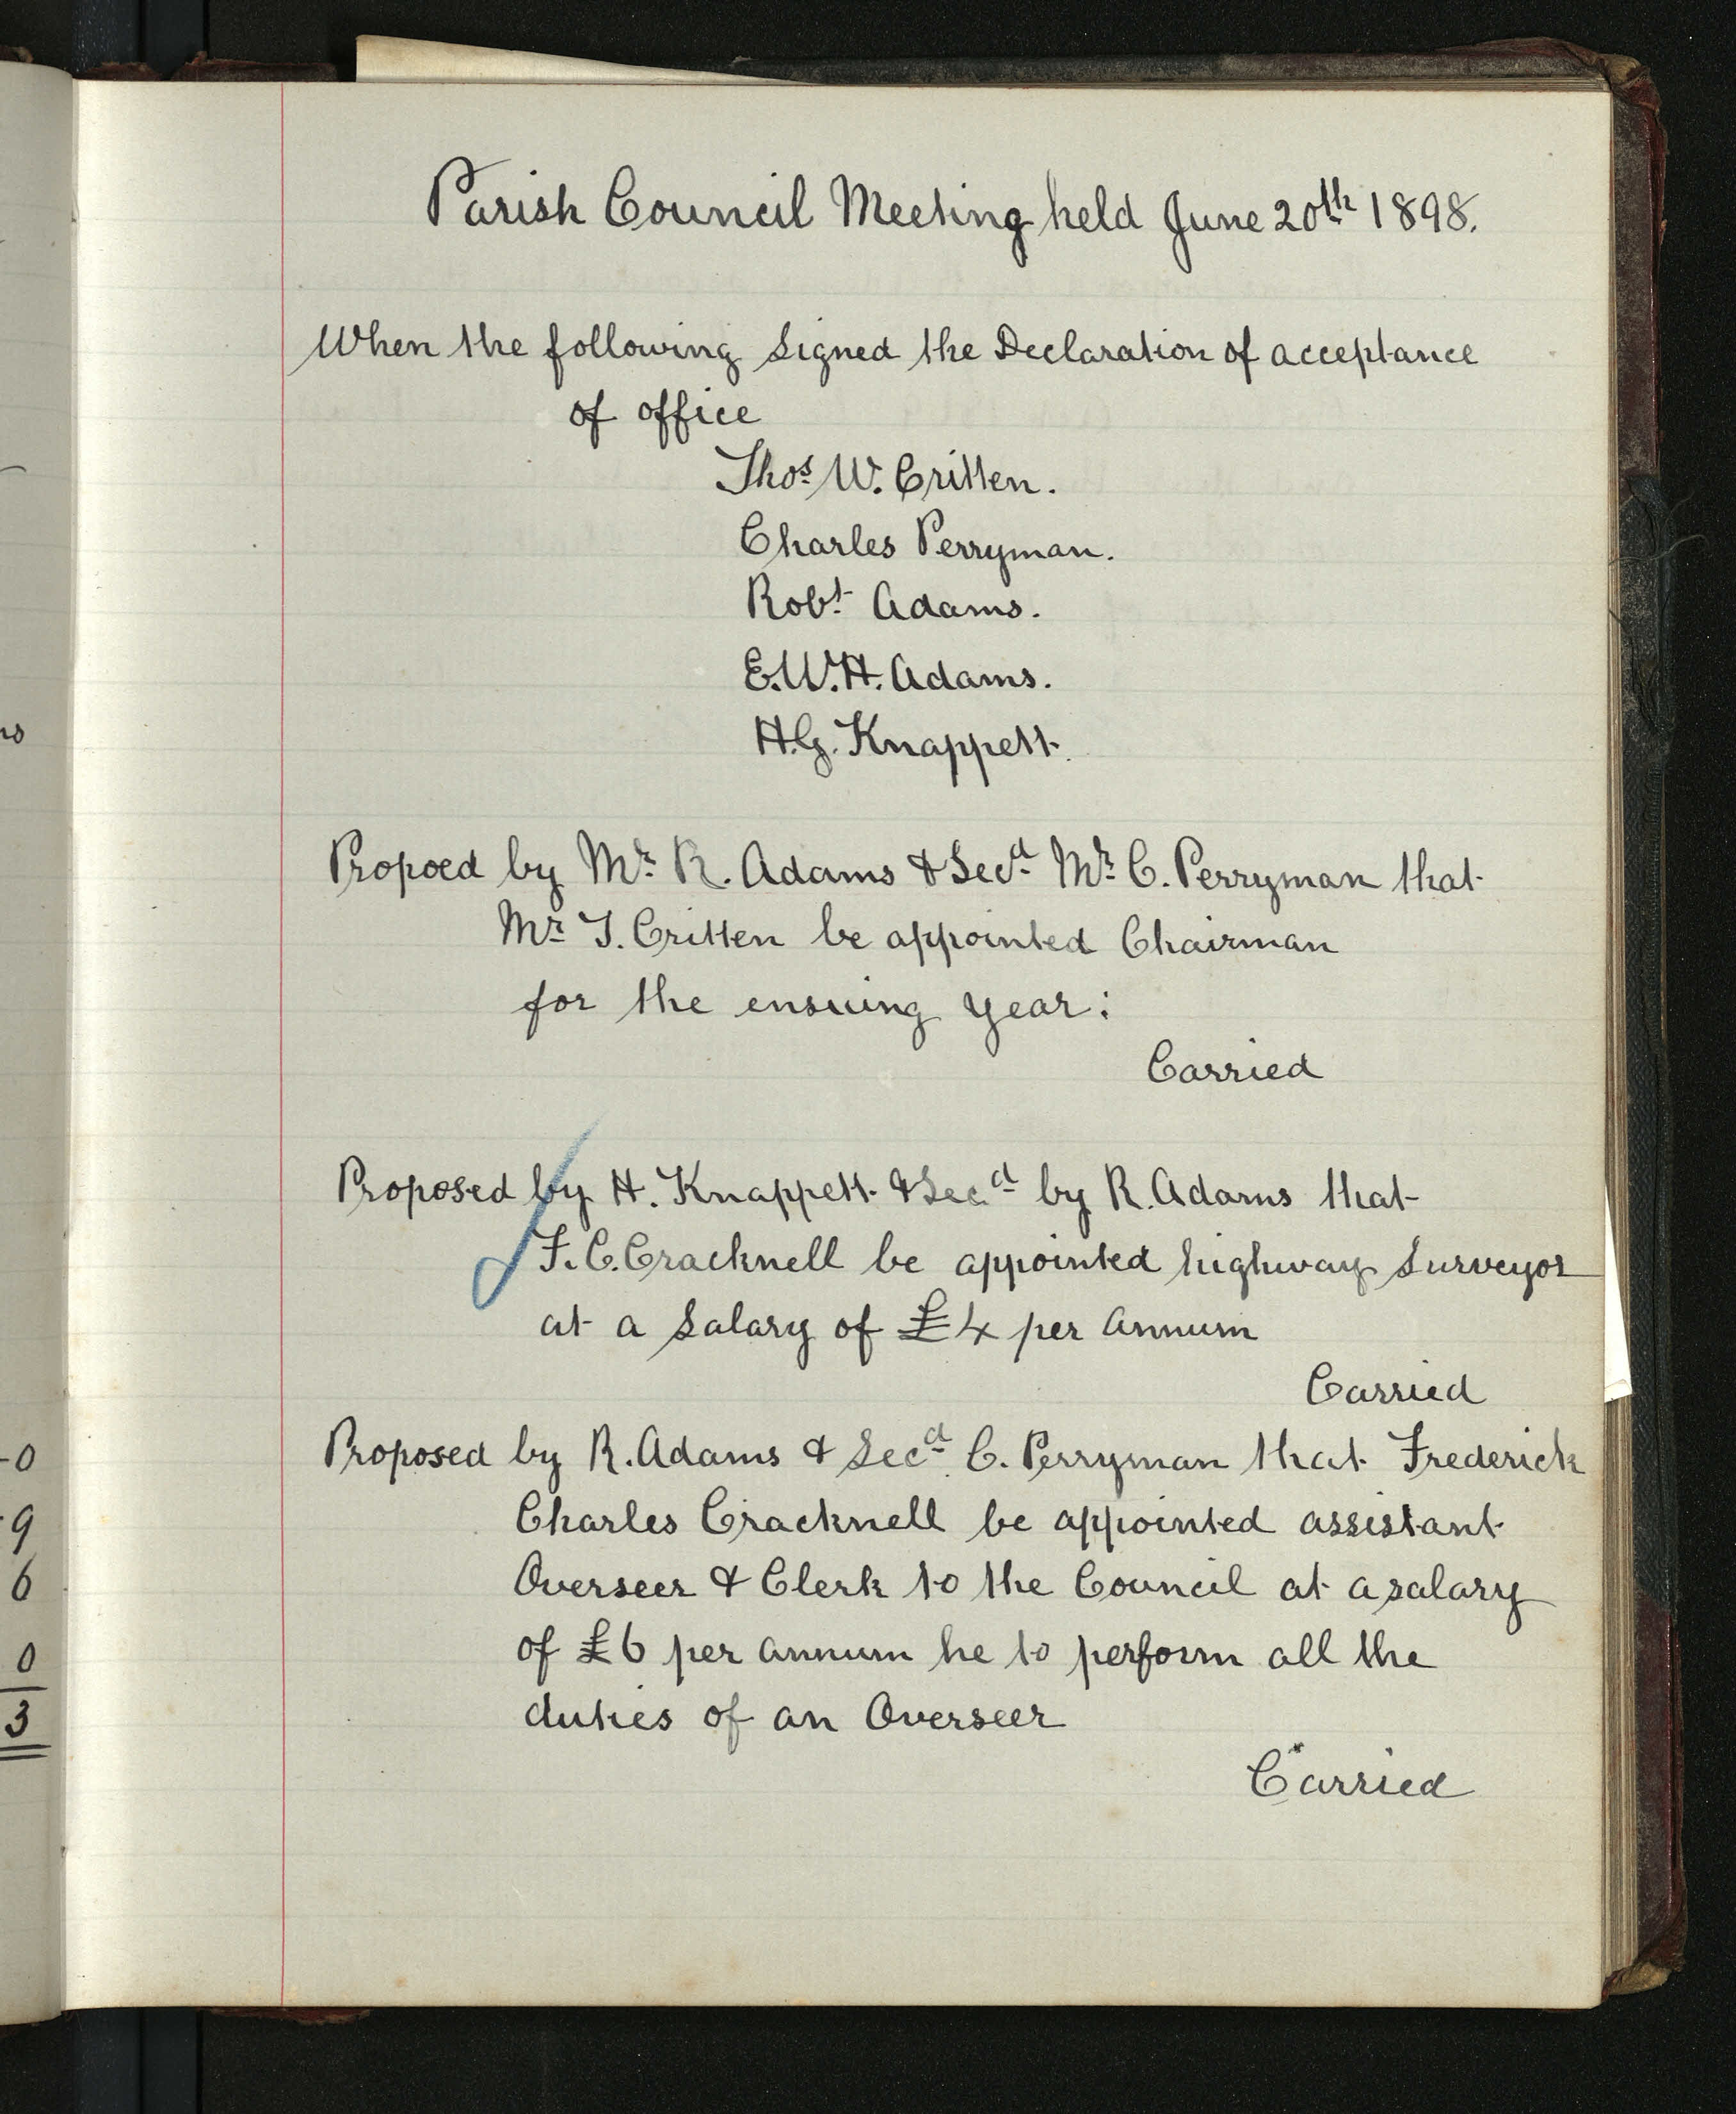 Parish Council Meeting held June 20th 1898.
When the following signed the Declaration of acceptance
of office
Thos W. Critten.
Charles Perryman.
Robt Adams.
E.W.H. Adams.
H.G. Knappett.
Propoed by Mr R. Adams & Secd Mr C. Perryman that
Mr T. Critten be appointed Chairman
for the ensuing year:
Carried
Proposed by H. Knappett & Secd by R. Adams that
F. C. Cracknell be appointed highway Surveyor
at a salary of £4 per annum
Carried
Proposed by R. Adams & Secd C. Perryman that Frederick
Charles Cracknell be appointed assistant
Overseer & Clerk to the Council at a salary
of £6 per annum he to perform all the
duties of an Overseer
Carried
0
9
6
0
3